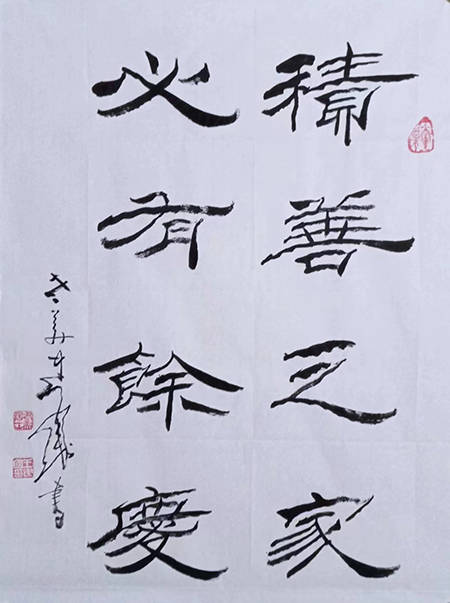 積善之家
必有餘慶
書